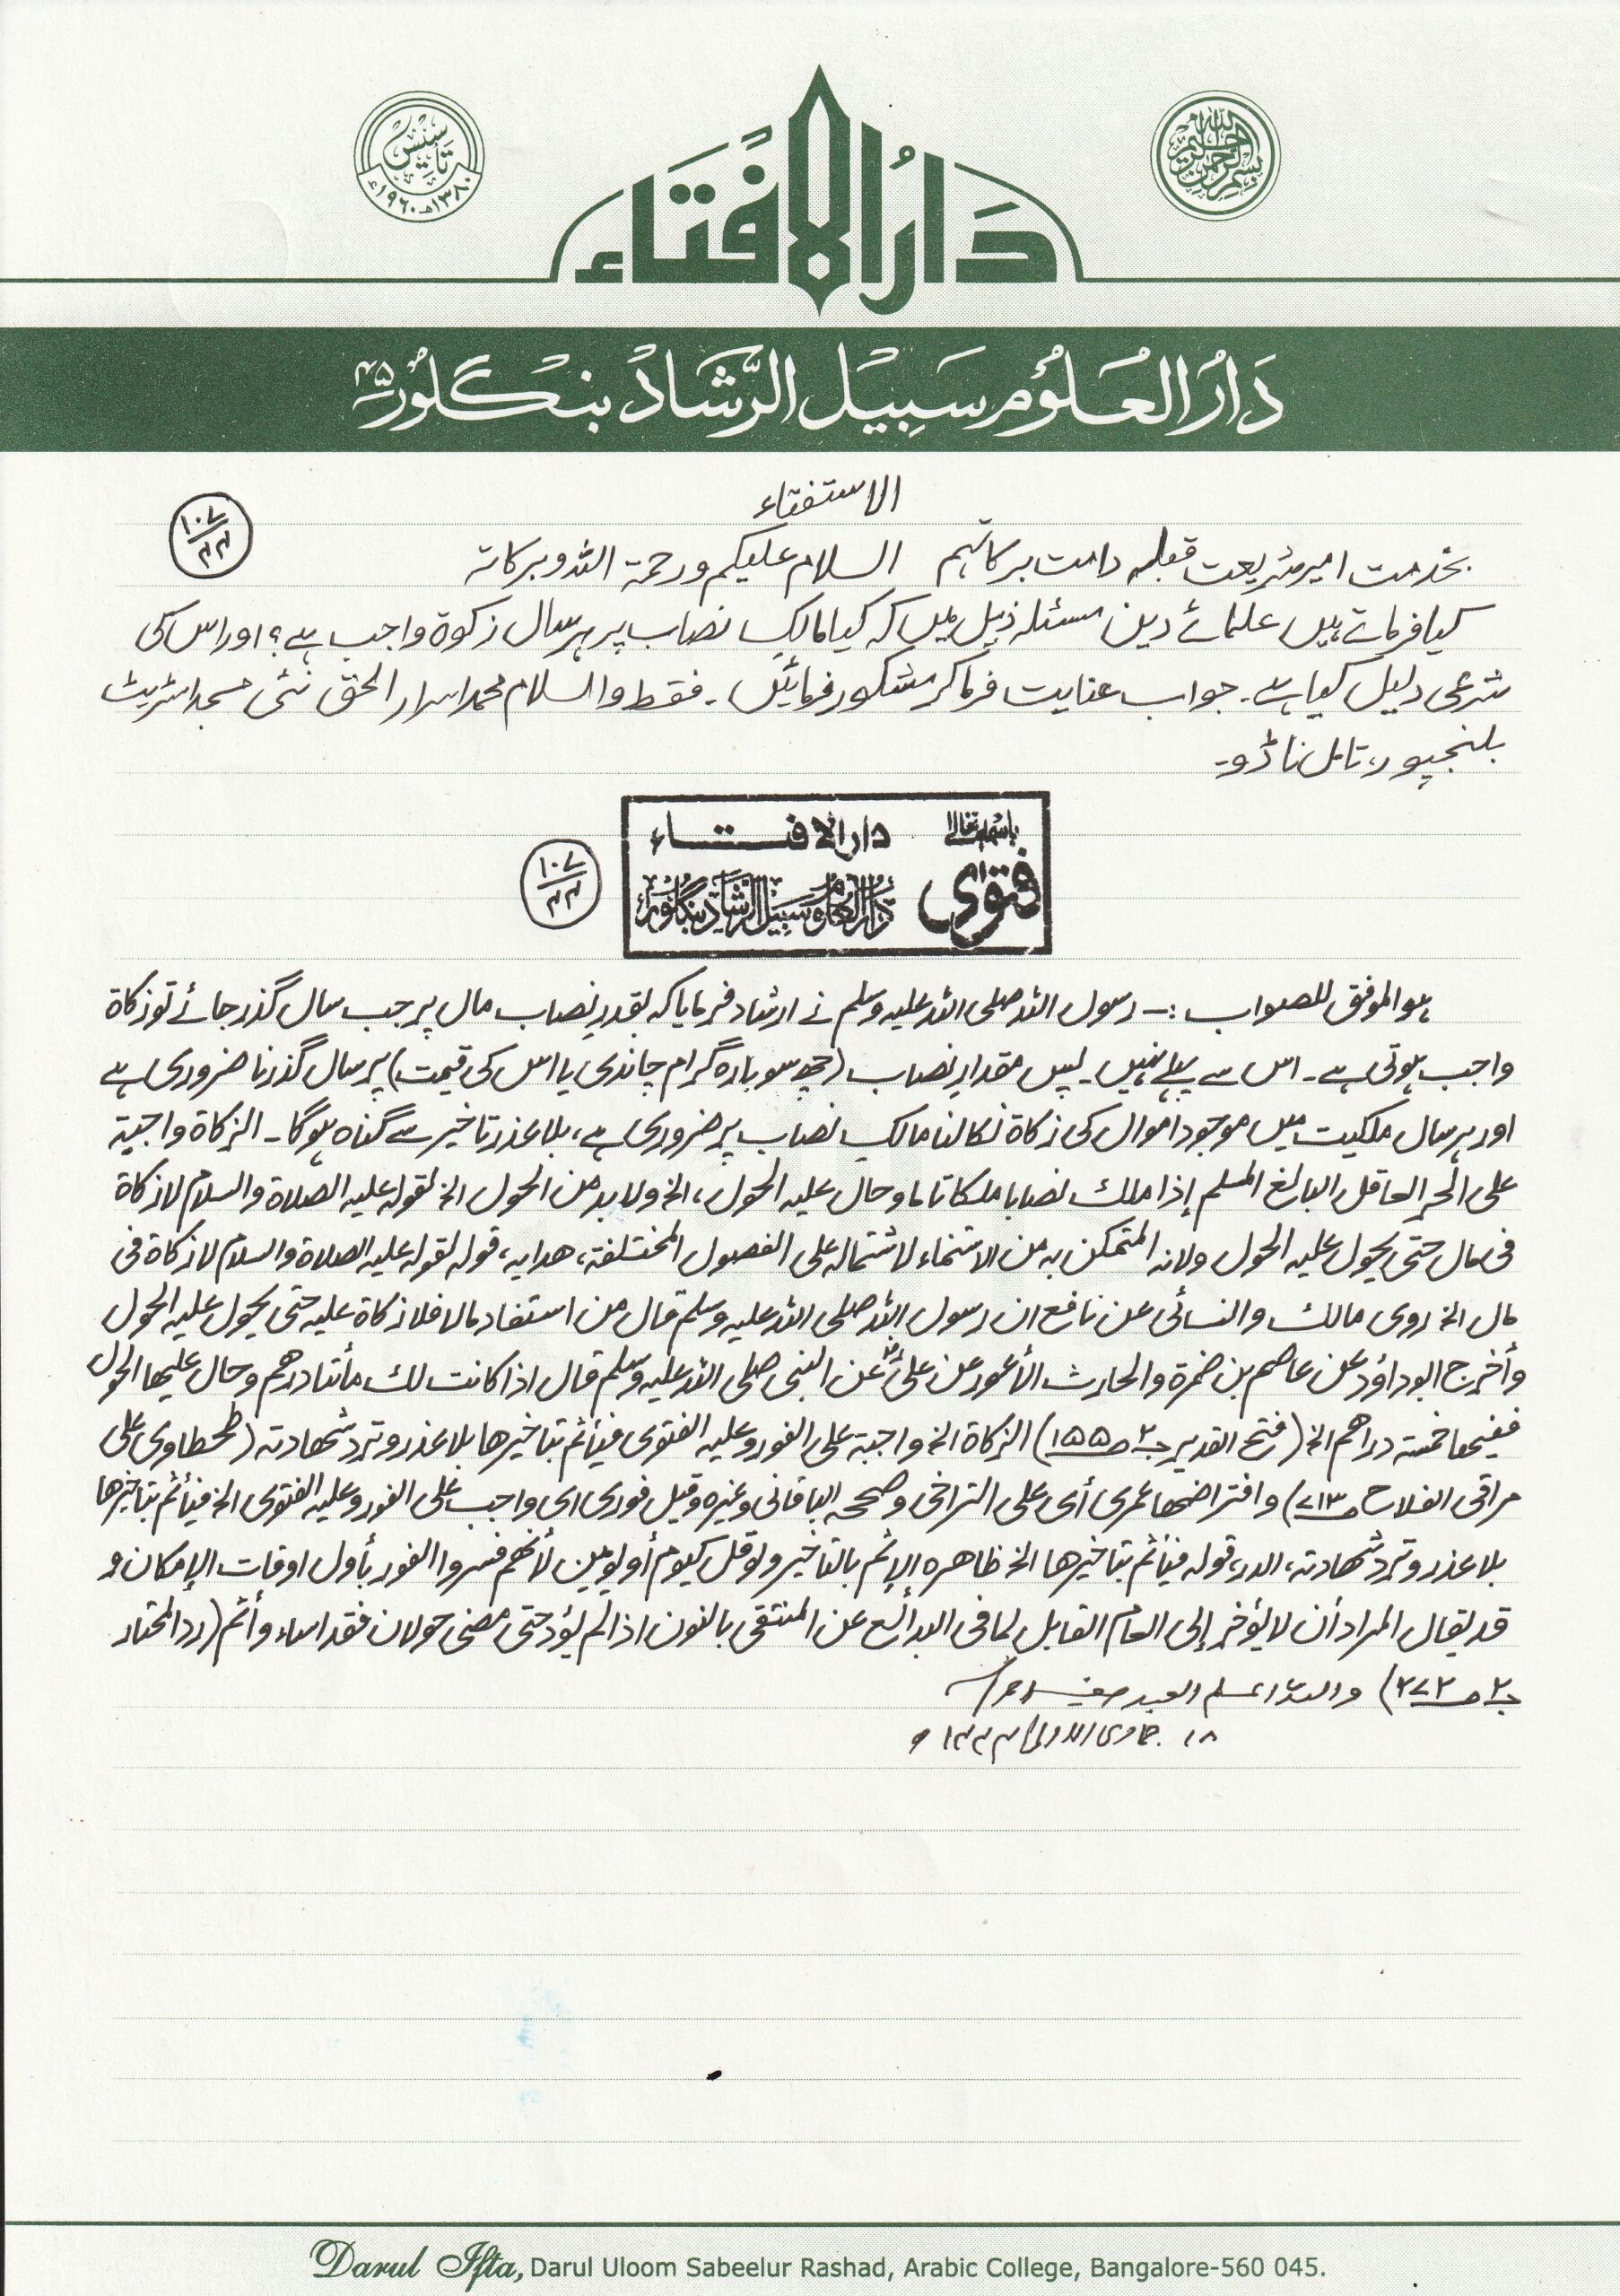 تأسيس
١٣٨٠هـ ١٩٦٠ء
بسم الله الرحمن الرحيم
دَارُالاِفتَاء
دَارُالعُلُوم سَبِيلُ الرَّشَاد بنگلور ۴۵
الاستفتاء
۱۰۷
۳۳
بخدمت امیر شریعت قبلہ دامت برکاتہم السلام علیکم ورحمۃ اللہ وبرکاتہ
کیا فرماتے ہیں علمائے دین مسئلہ ذیل میں کہ کیا مالکِ نصاب پر ہر سال زکوۃ واجب ہے؟ اور اس کی
شرعی دلیل کیا ہے۔ جواب عنایت فرماکر مشکور فرمائیں۔ فقط والسلام محمد اسرار الحق نئی مسجد اسٹریٹ
بلنجپور، تامل ناڈو۔
باسمہ تعالیٰ
فتویٰ
دار الافتاء
دارالعلوم سبیل الرشاد بنگلور
۱۰۷
۳۳
ہو الموفق للصواب :۔ رسول اللہ صلی اللہ علیہ وسلم نے ارشاد فرمایا کہ بقدرِ نصاب مال پر جب سال گذر جائے تو زکاۃ
واجب ہوتی ہے۔ اس سے پہلے نہیں۔ پس مقدارِ نصاب (چھ سو بارہ گرام چاندی یا اس کی قیمت) پر سال گذرنا ضروری ہے
اور ہر سال ملکیت میں موجود اموال کی زکاۃ نکالنا مالکِ نصاب پر ضروری ہے، بلا عذر تاخیر سے گناہ ہوگا۔ الزکاۃ واجبۃ
علی الحر العاقل البالغ المسلم إذا ملك نصابا ملكا تاما وحال علیہ الحول، الخ ولا بد من الحول الخ لقولہ علیہ الصلاۃ والسلام لا زکاۃ
فی مال حتی یحول علیہ الحول ولانہ المتمکن بہ من الاستنماء لاشتمالہ علی الفصول المختلفۃ، ھدایہ، قولہ لقولہ علیہ الصلاۃ والسلام لا زکاۃ فی
مال الخ روی مالك والنسائی عن نافع ان رسول اللہ صلی اللہ علیہ وسلم قال من استفاد مالا فلا زکاۃ علیہ حتی یحول علیہ الحول
وأخرج ابوداؤد عن عاصم بن ضمرۃ والحارث الأعور عن علیؓ عن النبی صلی اللہ علیہ وسلم قال اذا کانت لك مأتا درھم وحال علیھا الحول
ففیھا خمسۃ دراھم الخ (فتح القدیر جـ۲ صـ۱۵۵) الزکاۃ الخ واجبۃ علی الفور وعلیہ الفتوی فیأثم بتاخیرھا بلا عذر وترد شھادتہ (طحطاوی علی
مراقی الفلاح صـ۷۱۳) وافتراضھا عمری أی علی التراخی وصححہ الباقانی وغیرہ وقیل فوری ای واجب علی الفور وعلیہ الفتوی الخ فیأثم بتاخیرھا
بلا عذر وترد شھادتہ، الدر، قولہ فیأثم بتاخیرھا الخ ظاھرہ الإثم بالتاخیر ولو قل کیوم أو یومین لأنھم فسروا الفور بأول اوقات الإمکان و
قد یقال المراد أن لا یؤخر إلی العام القابل لما فی البدائع عن المنتقی بالنون اذا لم یؤد حتی مضی حولان فقد اساء وأثم (رد المحتار
جـ۲ صـ۲۷۲) واللہ اعلم العبد صغیر احمد
۱۸؍ جمادی الاولی
Darul Ifta, Darul Uloom Sabeelur Rashad, Arabic College, Bangalore-560 045.